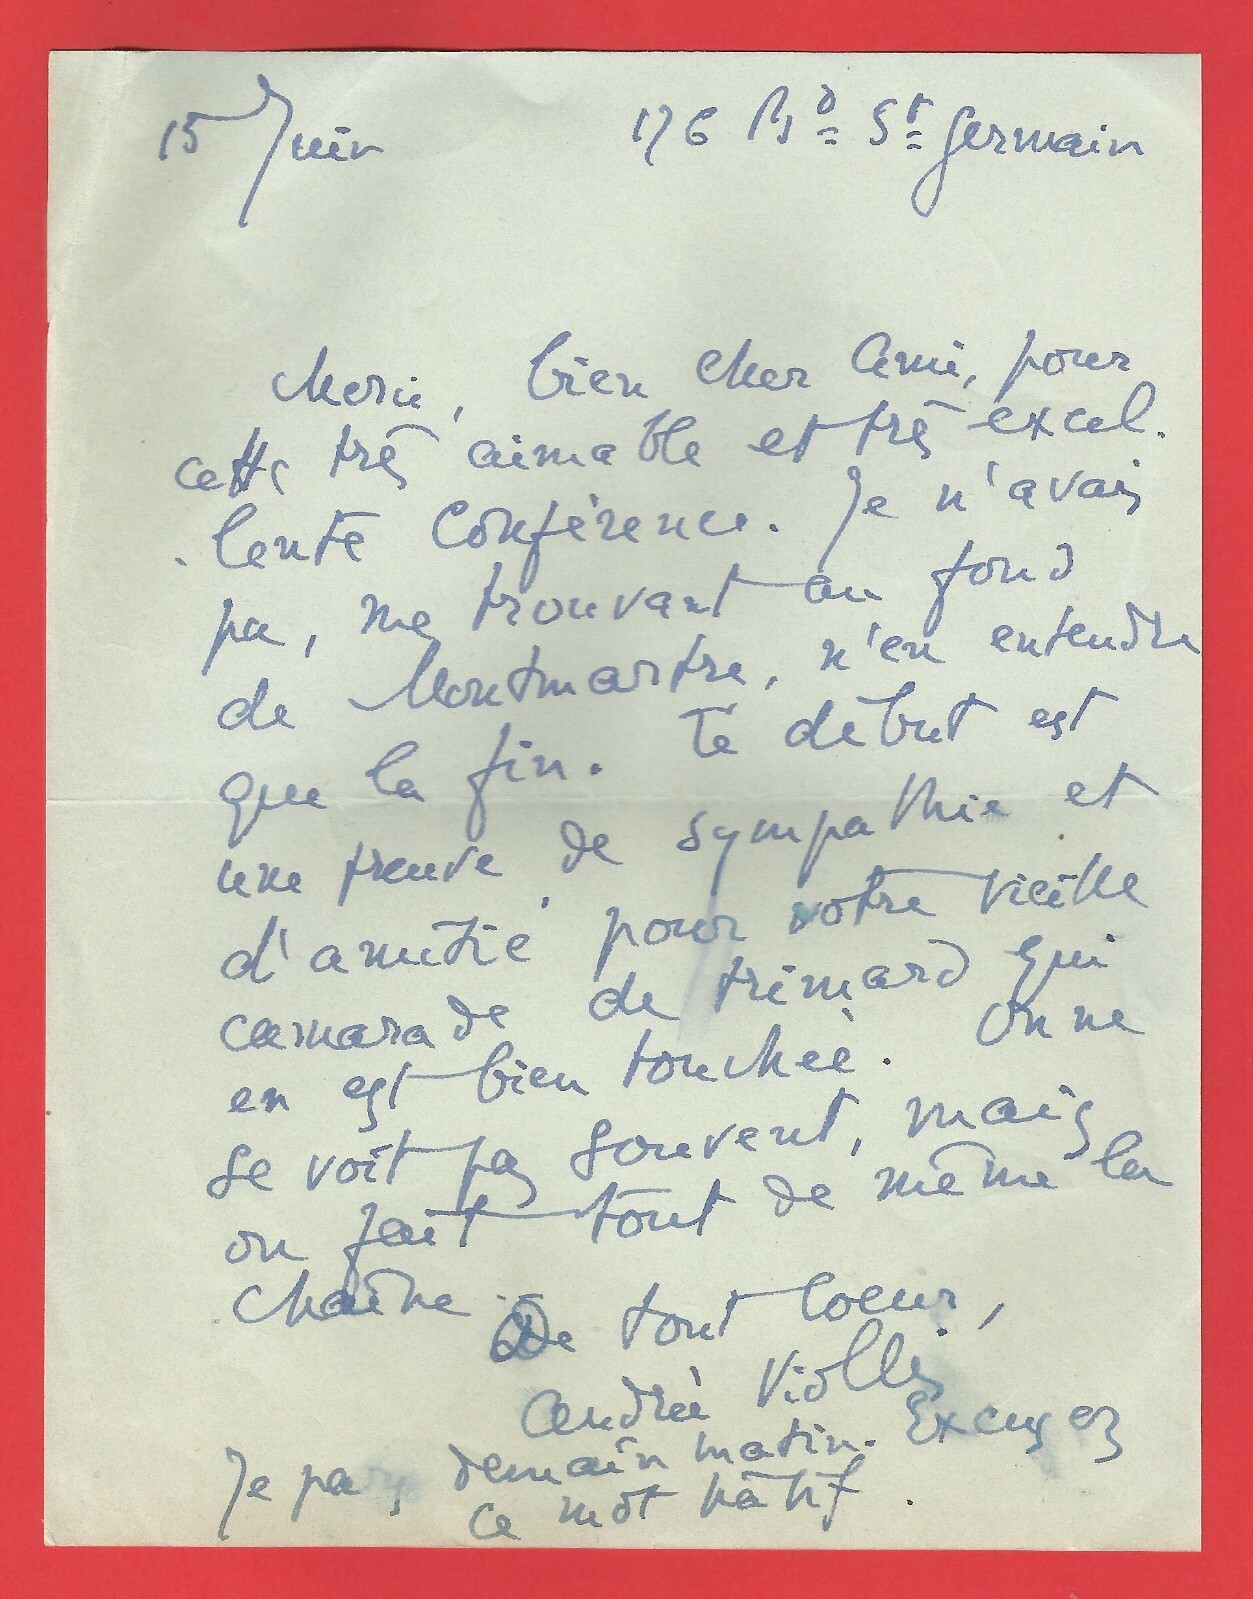 15 Juin 176 Bd St Germain
Merci, bien cher Ami, pour
cette très aimable et très excel-
-lente Conférence. Je n'avais
pu, me trouvant au fond
de Montmartre, n'en entendre
que la fin. Le début est
une preuve de sympathie et
d'amitié pour votre vieille
camarade de trimard qui
en est bien touchée. On ne
se voit pas souvent, mais
on fait tout de même la
chaîne. De tout Coeur,
Andrée Viollis
Je pars demain matin. Excusez
ce mot hâtif.